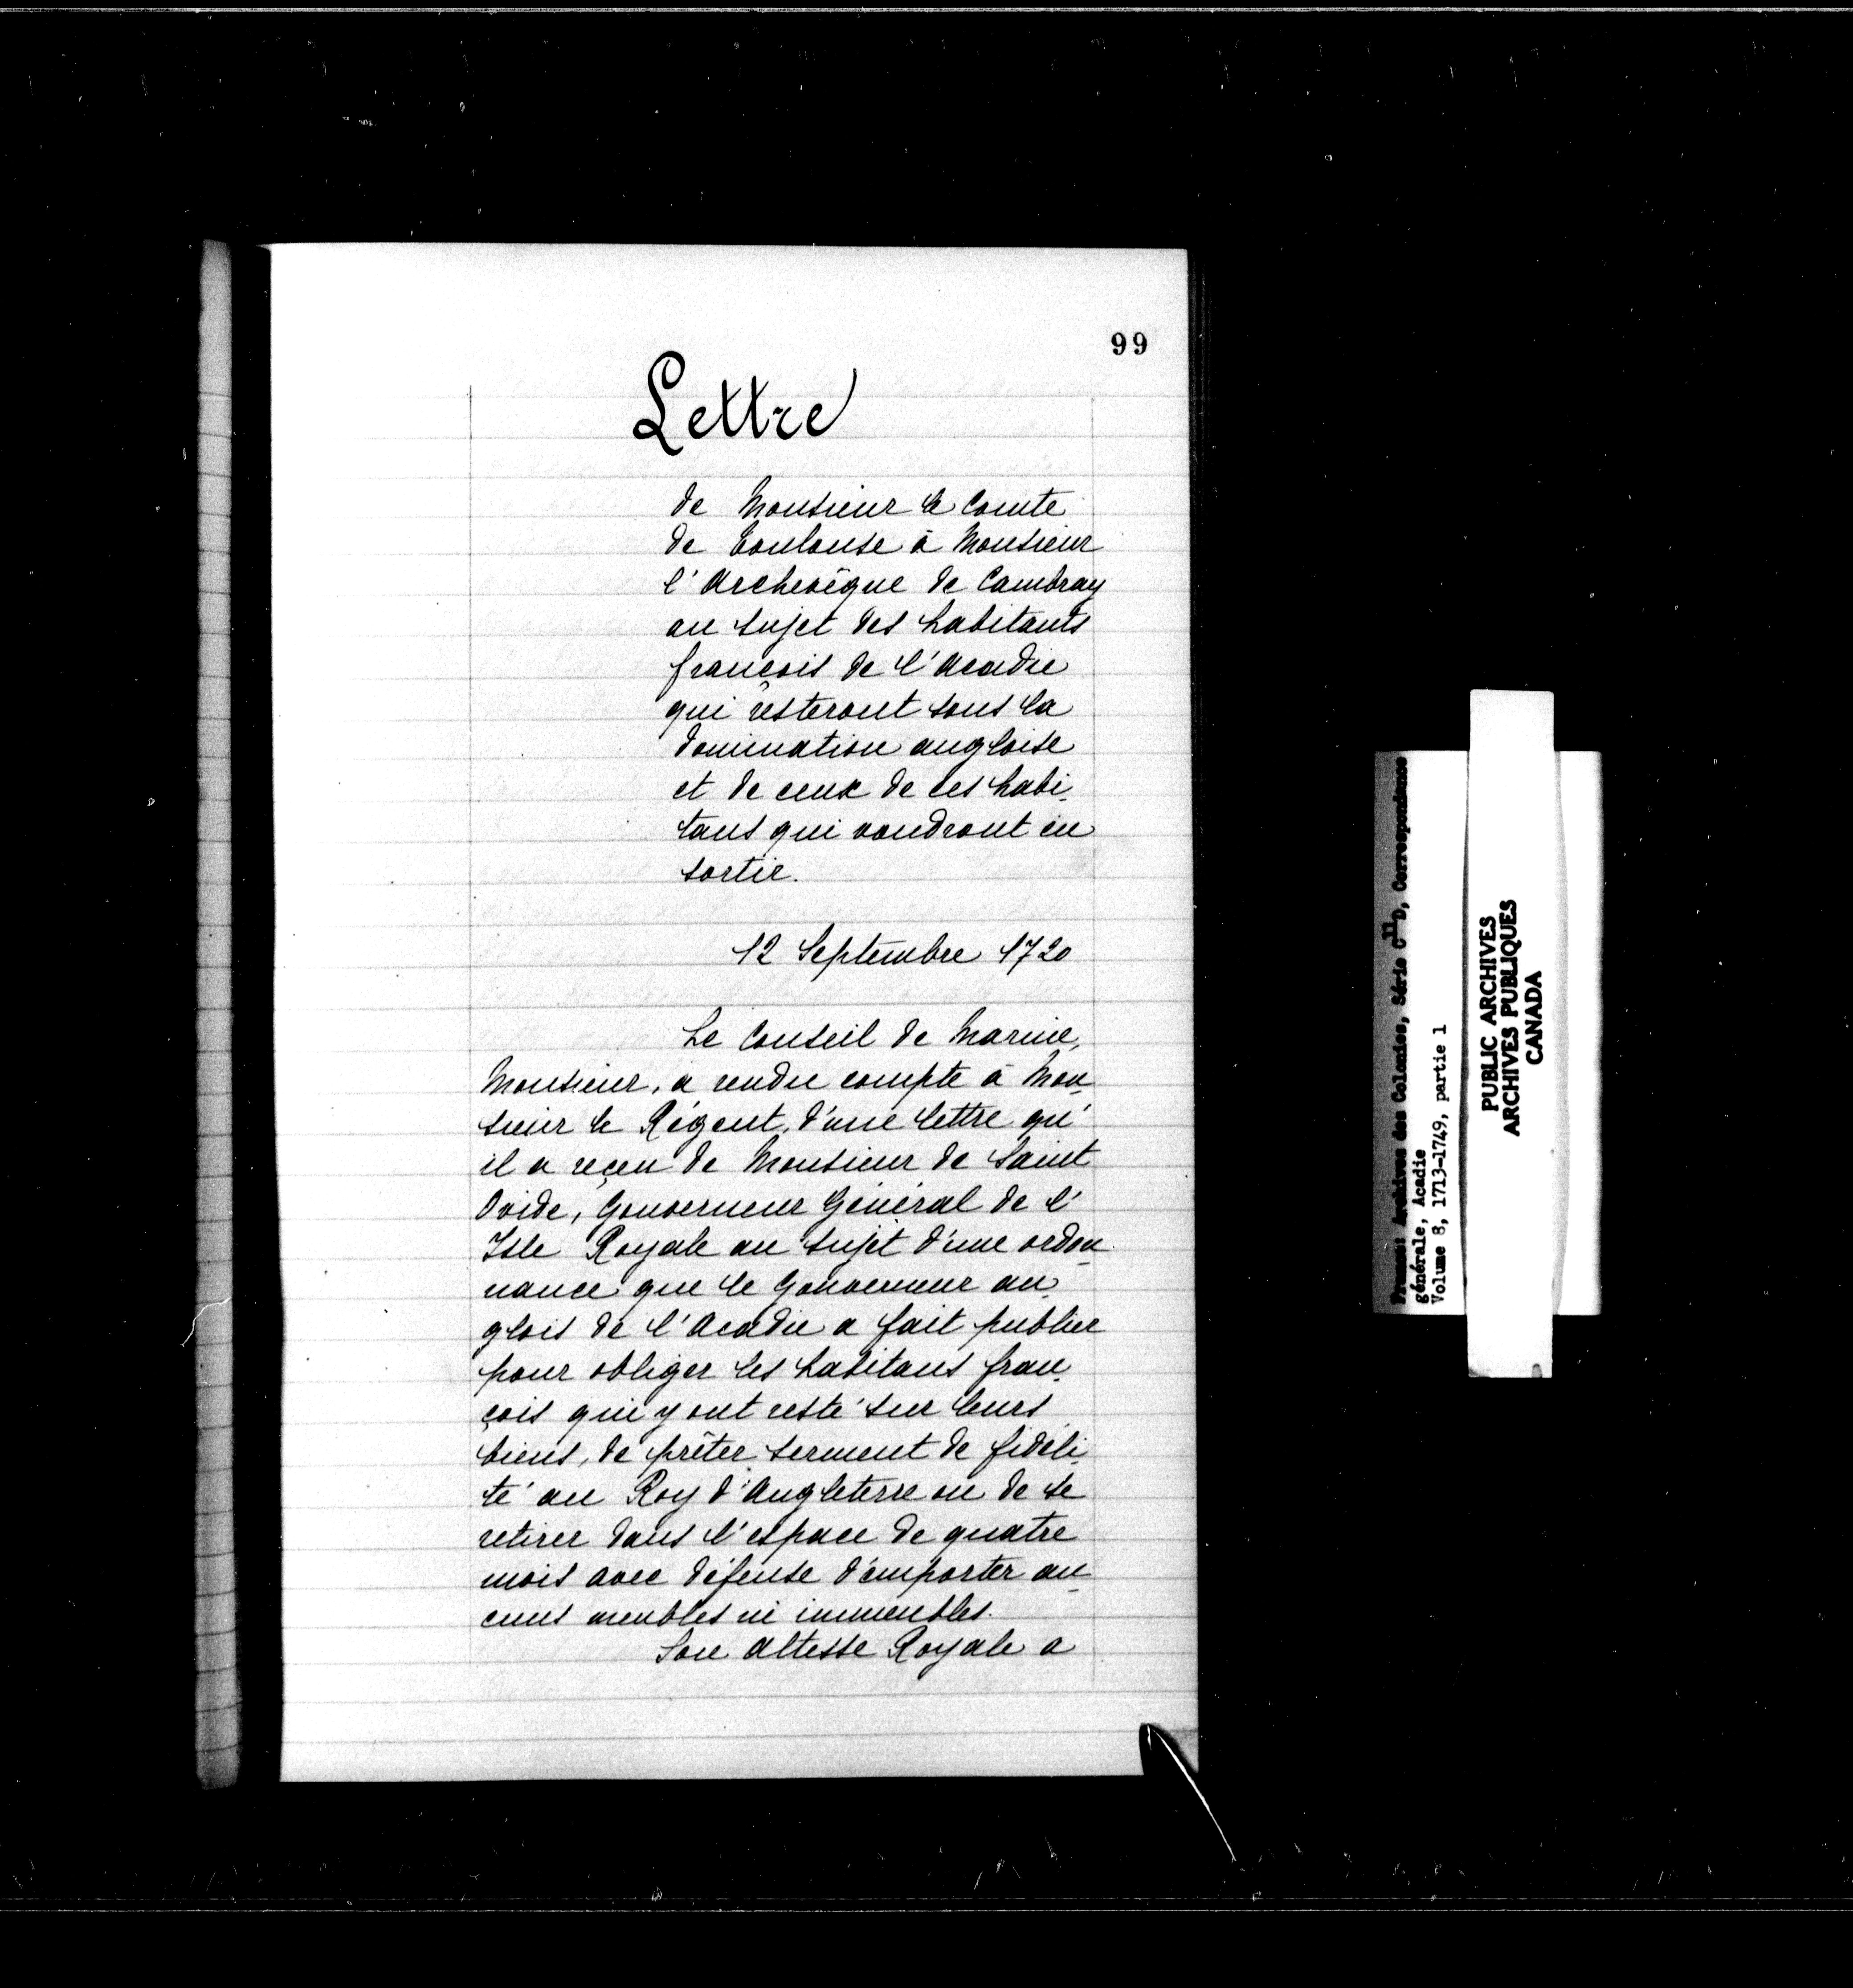 99
Lettre
de Monsieur le Comte
de Toulouse à Monsieur
l'Archevêque de Cambray
au sujet des habitants
françois de l'Acadie
qui resteront sous la
domination angloise
et de ceux de ces habi-
tans qui voudront en
sortir.
12 Septembre 1720
Le Conseil de Marine,
Monsieur, a rendu compte à Mon-
sieur le Régent, d'une lettre qu'
il a reçeu de Monsieur de Saint
Ovide, Gouverneur Général de l'
Isle Royale au sujet d'une ordon-
nance que le Gouverneur an-
glois de l'Acadie a fait publier
pour obliger les habitans fran-
çois qui y ont resté sur leurs
biens, de prêter serment de fidéli-
té au Roy d'Angleterre ou de se
retirer dans l'espace de quatre
mois avec défense d'emporter au-
cuns meubles ni immeubles.
Son Altesse Royale a
France: Archives des Colonies, Série C11D, Correspondance
générale, Acadie
Volume 8, 1713-1749, partie 1
PUBLIC ARCHIVES
ARCHIVES PUBLIQUES
CANADA